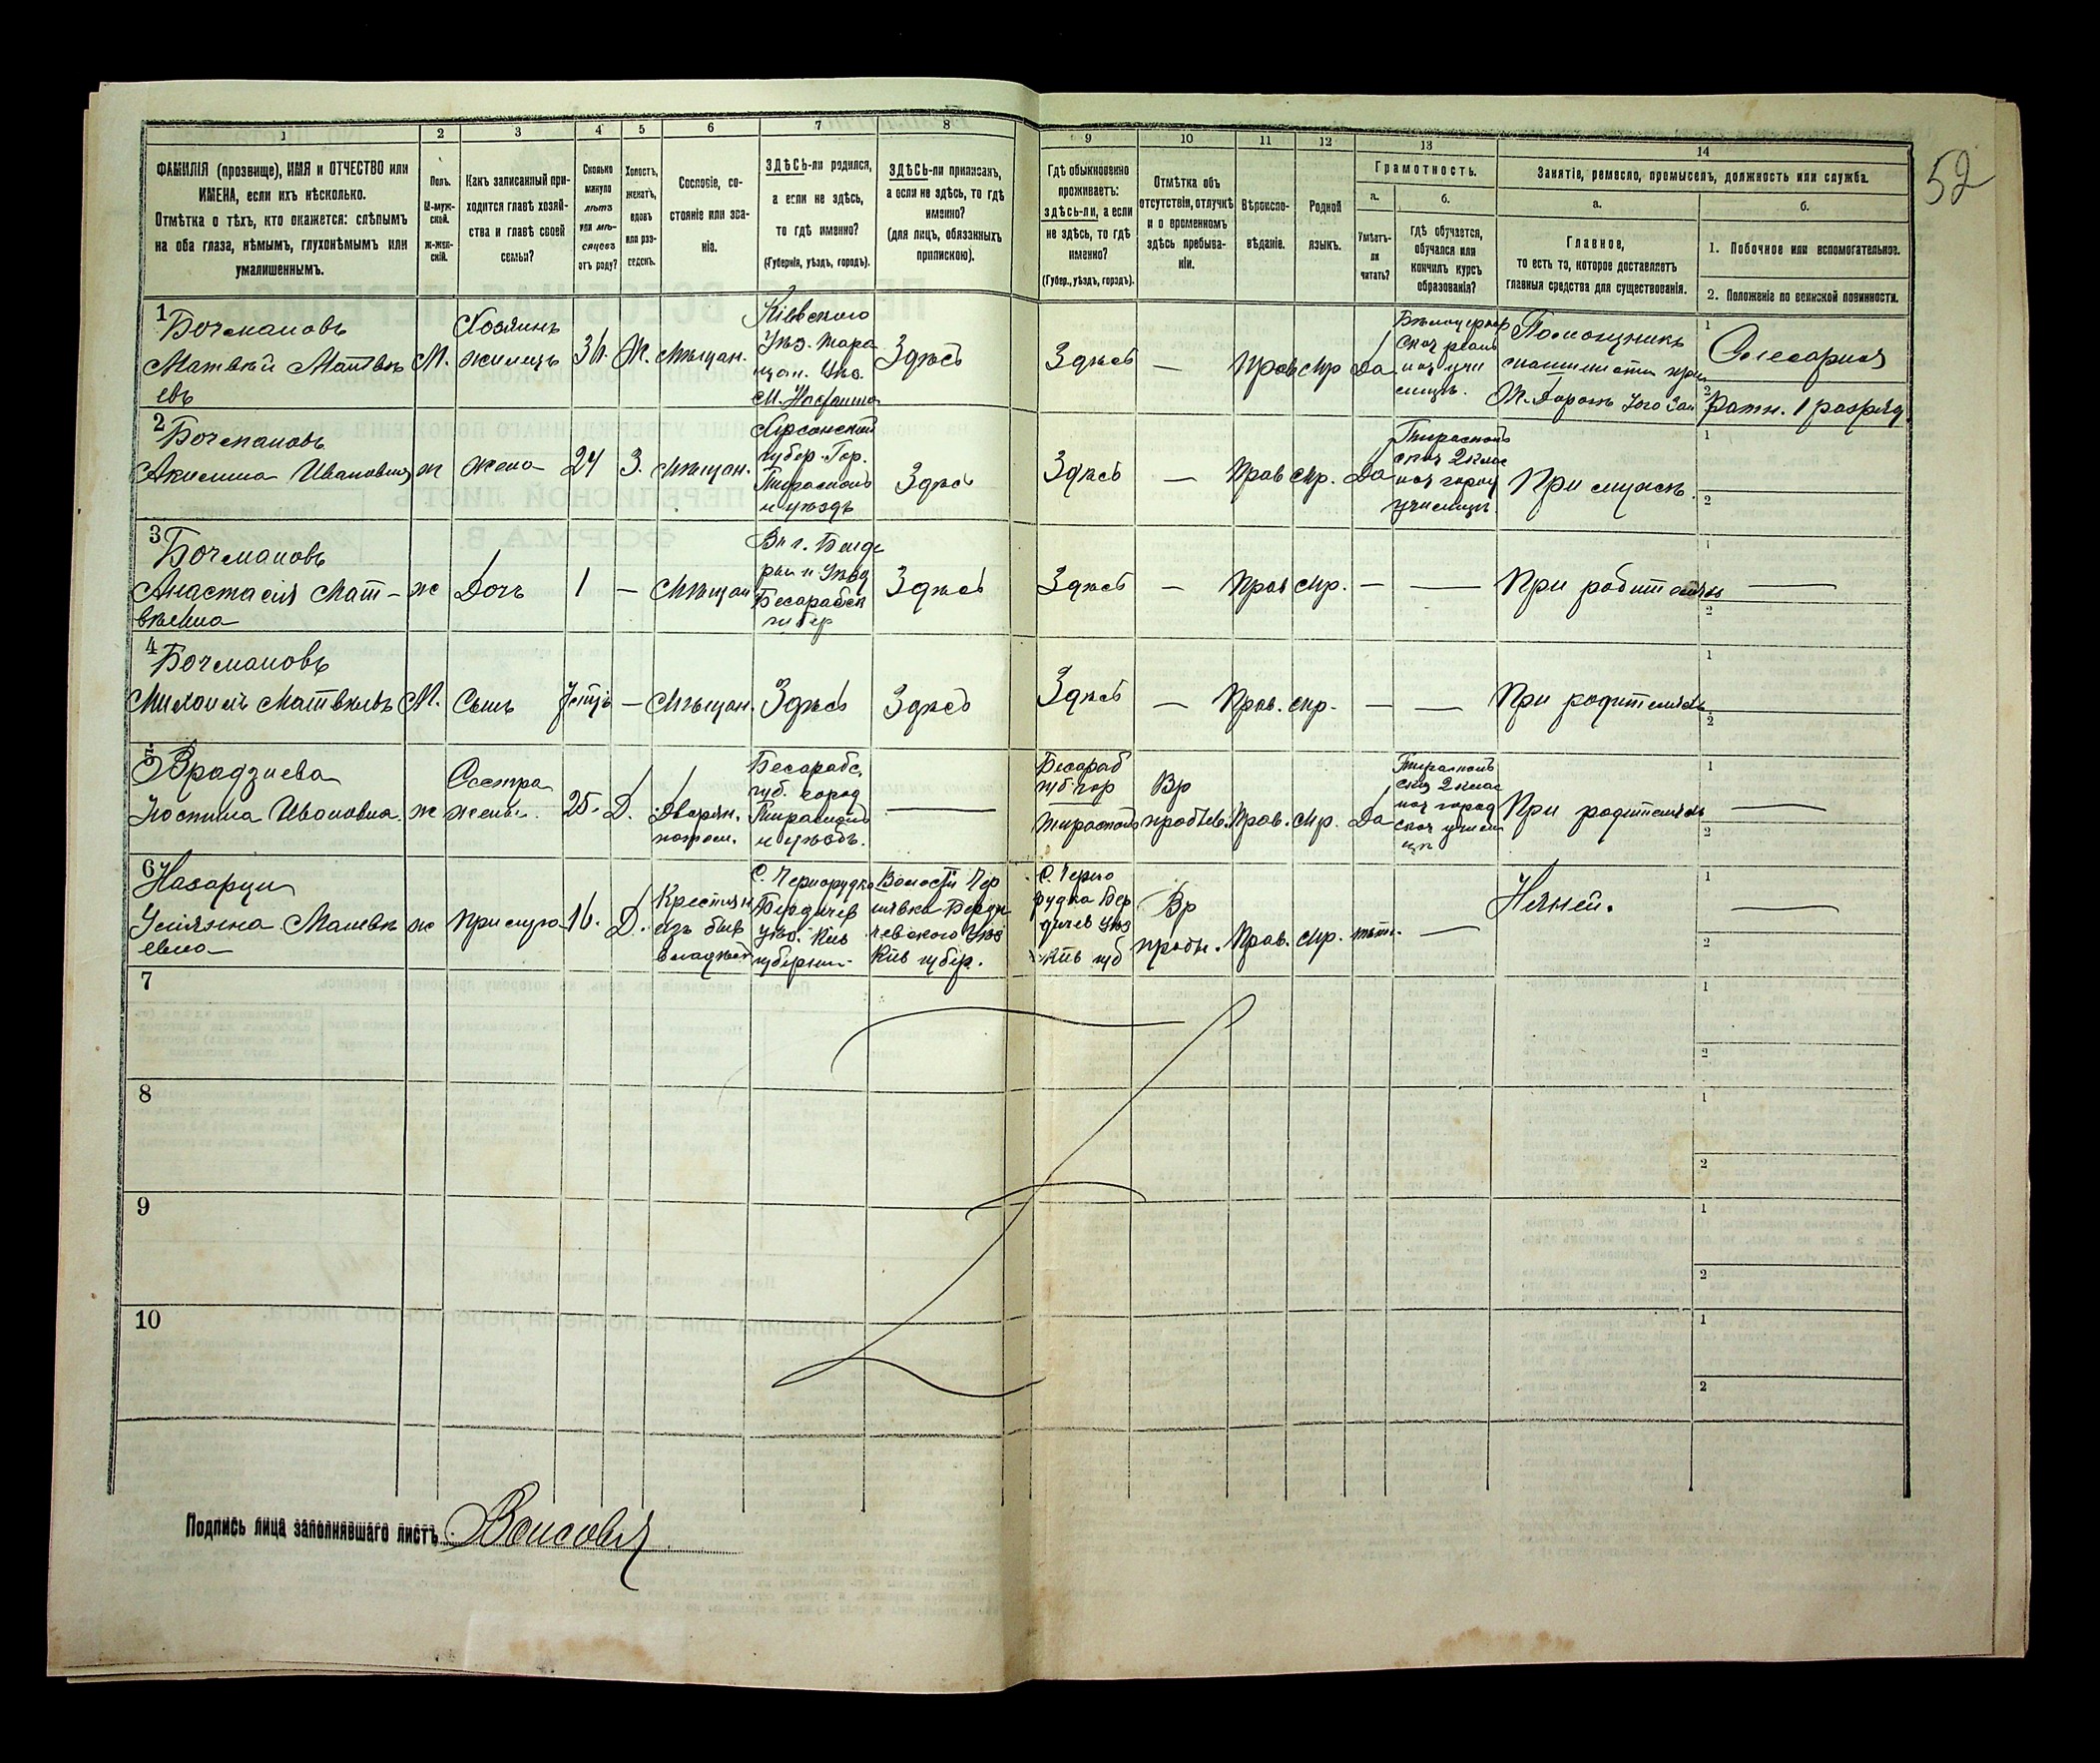 52
1 2 3 4 5 6 7 8 9 10 11 12 13 14
ФАМИЛІЯ (прозвище), ИМЯ и ОТЧЕСТВО или
ИМЕНА, если ихъ нѣсколько.
Отмѣтка о тѣхъ, кто окажется: слѣпымъ
на оба глаза, нѣмымъ, глухонѣмымъ или
умалишеннымъ.
Полъ.
М-муж-
ской.
Ж-жен-
скій.
Какъ записанный при-
ходится главѣ хозяй-
ства и главѣ своей
семьи?
Сколько
минуло
лѣтъ
или мѣ-
сяцевъ
отъ роду?
Холостъ,
женатъ,
вдовъ
или раз-
веденъ.
Сословіе, со-
стояніе или зва-
ніе.
ЗДѢСЬ-ли родился,
а если не здѣсь,
то гдѣ именно?
(Губернія, уѣздъ, городъ).
ЗДѢСЬ-ли приписанъ,
а если не здѣсь, то гдѣ
именно?
(для лицъ, обязанныхъ
припискою).
Гдѣ обыкновенно
проживаетъ:
здѣсь-ли, а если
не здѣсь, то гдѣ
именно?
(Губер., уѣздъ, городъ).
Отмѣтка объ
отсутствіи, отлучкѣ
и о временномъ
здѣсь пребыва-
ніи.
Вѣроиспо-
вѣданіе.
Родной
языкъ.
Грамотность.
а.
Умѣетъ-
ли
читать?
б.
гдѣ обучается,
обучался или
кончилъ курсъ
образованія?
Занятіе, ремесло, промыселъ, должность или служба.
а.
Главное,
то есть то, которое доставляетъ
главныя средства для существованія.
б.
1. Побочное или вспомогательное.
2. Положеніе по воинской повинности.
1
Бочмановъ
Матвѣй Матвѣ
евъ
М.
Хозяинъ
жилецъ
Ж.
Мѣщан.
Кіевскаго
Уѣз. Тара
щан. Уѣз.
Здѣсь
Здѣсь
—
Прав
Мр
Да
Помощникъ
машиниста при
Ж. Дорогѣ Юго Зап
1
Слесарня
2
Ратн. 1 разряд.
2
Бочмановъ
Акилина Ивановна
ж
жена
24
З.
Мѣщан.
Херсонской
губер. Гор.
Тирасполь
и уѣздъ
Здѣсь
Здѣсь
—
Прав
Мр.
Да
Тирасполь
ское 2 клас
ное город
училищѣ
При мужѣ.
1
2
3
Бочмановъ
Анастасія Мат-
вѣевна
ж
Дочь
1
—
Мѣщан
Въ г. Бенде
ры и Уѣзд
Бесарабск
губер
Здѣсь
Здѣсь
—
Прав
Мр.
—
—
При родителяхъ
1
—
2
4
Бочмановъ
Михаилъ Матвѣевъ
М.
Сынъ
—
Мѣщан.
Здѣсь
Здѣсь
Здѣсь
—
Прав.
Мр.
—
—
При родителяхъ
1
2
5
Врадзиева
Ивановна.
ж
Сестра
жены.
25.
Д.
Дворян.
потом.
Бесарабс.
губ. город
Тирасполь
и уѣздъ.
—
Бесараб
губ гор
Тирасполь
Вр
Прав.
Мр.
Да
Тирасполь
ское 2 клас
ное город
ское учили
щѣ
При родителяхъ
1
—
2
6
Назарци
Улиана Матвѣ
евна
ж
Прислуга
16.
Д.
Крестьян
изъ быв
владѣл
С. Чернорудка
Бердичев
уѣз. Кіев
губерніи
Волости Чер
нявка Берди
чевскаго Уѣз
Кіев губер.
С. Черно
рудка Бер
дичев Уѣз
Кіев губ
Вр
пребы.
Прав.
Мр.
нѣтъ.
—
Няней.
1
—
2
7
1
2
8
1
2
9
1
2
10
1
2
Подпись лица заполнявшаго листъ